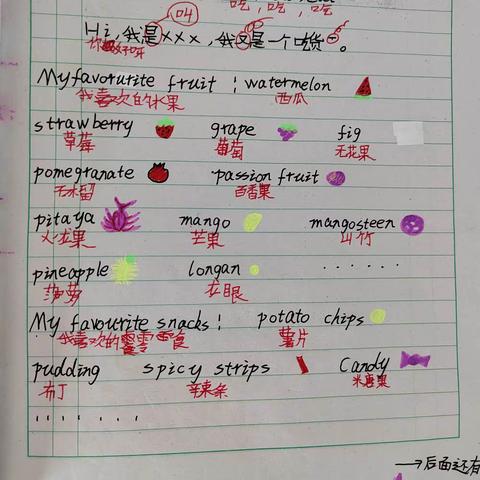 吃，吃，吃
叫
Hi，我是XXX，我又是一个吃货。
你好呀
My favorurite fruit : watermelon
我喜欢的水果 西瓜
strawberry grape fig
草莓 葡萄 无花果
pomegranate passion fruit
石榴 百香果
pitaya mango mangosteen
火龙果 芒果 山竹
pineapple longan ......
菠萝 龙眼
My favourite snacks : potato chips
我喜欢的零食 薯片
pudding spicy strips Candy
布丁 辣条 糖果
.......
→后面还有